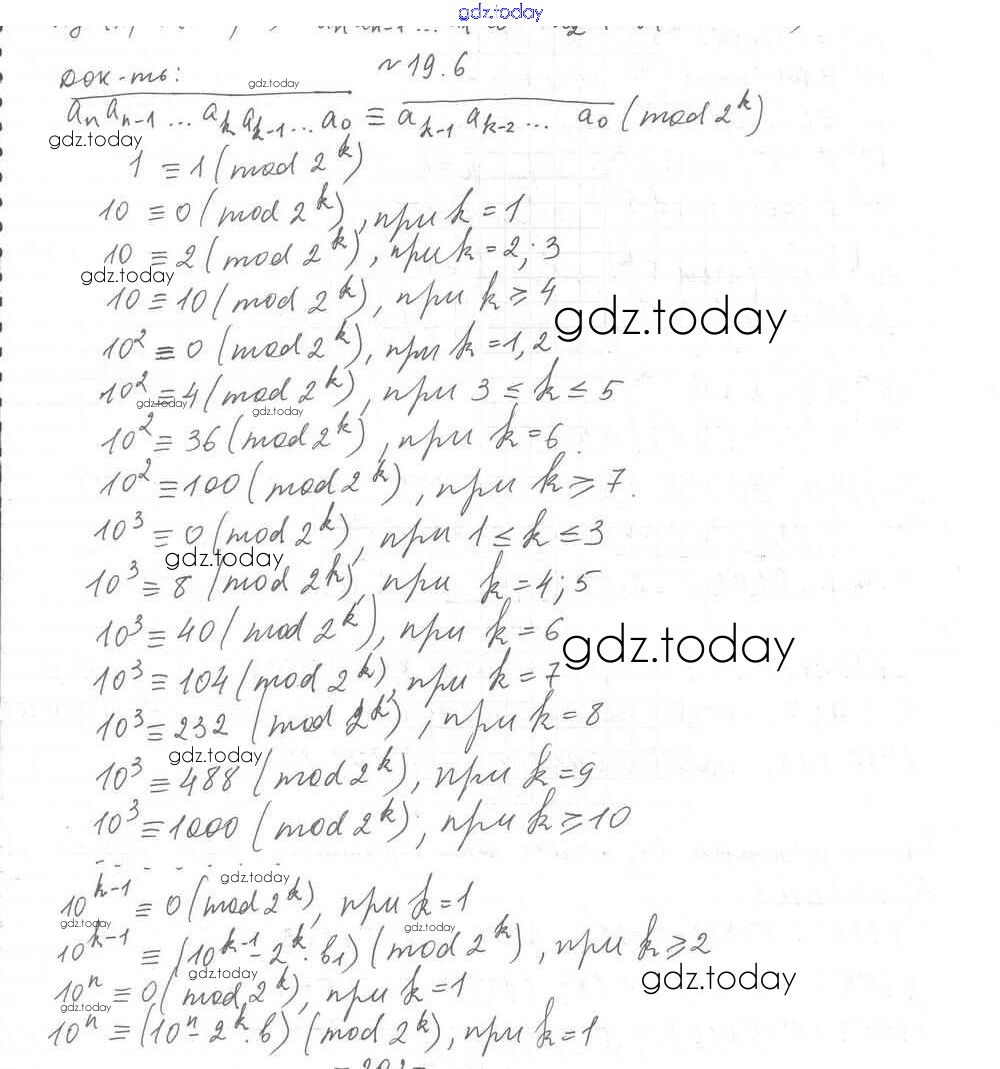 gdz.today
№ 19.6
Док-ть:
gdz.today
aₙaₙ₋₁ ... aₖaₖ₋₁ ... a₀ ≡ aₖ₋₁aₖ₋₂ ... a₀ (mod 2ᵏ)
gdz.today
1 ≡ 1 (mod 2ᵏ)
10 ≡ 0 (mod 2ᵏ), при k = 1
10 ≡ 2 (mod 2ᵏ), при k = 2; 3
gdz.today
10 ≡ 10 (mod 2ᵏ), при k ≥ 4
gdz.today
10² ≡ 0 (mod 2ᵏ), при k = 1, 2
10² ≡ 4 (mod 2ᵏ), при 3 ≤ k ≤ 5
gdz.today
gdz.today
10² ≡ 36 (mod 2ᵏ), при k = 6
10² ≡ 100 (mod 2ᵏ), при k ≥ 7.
10³ ≡ 0 (mod 2ᵏ), при 1 ≤ k ≤ 3
gdz.today
10³ ≡ 8 (mod 2ᵏ), при k = 4; 5
10³ ≡ 40 (mod 2ᵏ), при k = 6
gdz.today
10³ ≡ 104 (mod 2ᵏ), при k = 7
10³ ≡ 232 (mod 2ᵏ), при k = 8
gdz.today
10³ ≡ 488 (mod 2ᵏ), при k = 9
10³ ≡ 1000 (mod 2ᵏ), при k ≥ 10
gdz.today
10ᵏ⁻¹ ≡ 0 (mod 2ᵏ), при k = 1
gdz.today
gdz.today
10ᵏ⁻¹ ≡ (10ᵏ⁻¹ - 2ᵏ · b₁) (mod 2ᵏ), при k ≥ 2
gdz.today
gdz.today
10ⁿ ≡ 0 (mod 2ᵏ), при k = 1
gdz.today
10ⁿ ≡ (10ⁿ - 2ᵏ · b) (mod 2ᵏ), при k = 1